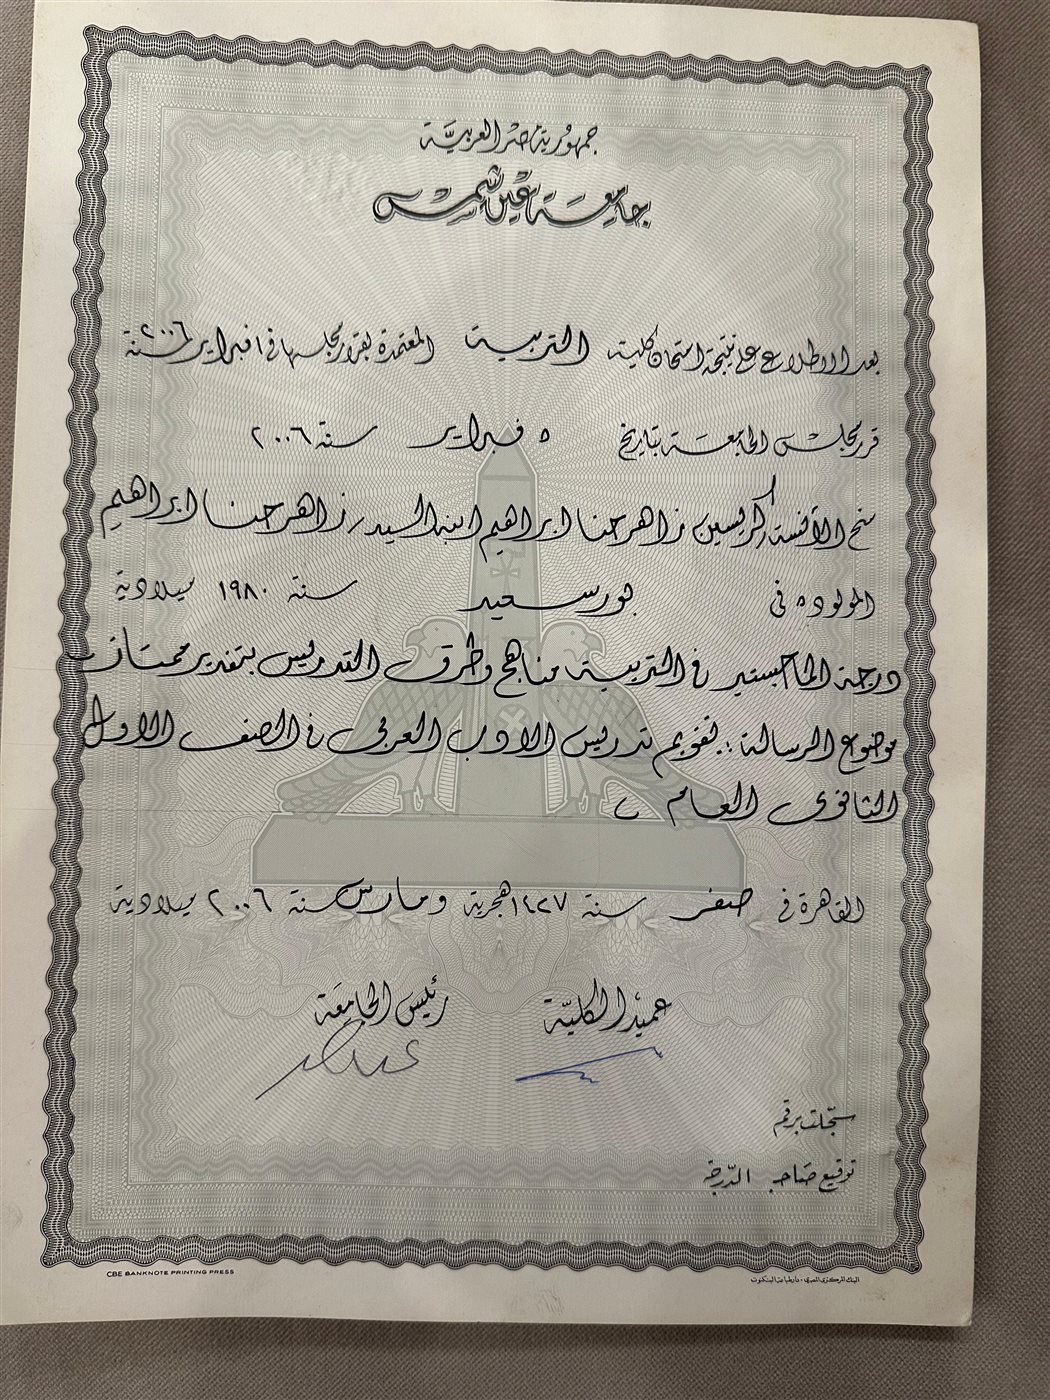 جمهورية مصر العربية
جامعة عين شمس
بعد الاطلاع على نتيجة امتحان كلية التربية المعتمدة بقرار مجلسها في ١ فبراير سنة ٢٠٠٦
قرر مجلس الجامعة بتاريخ ٥ فبراير سنة ٢٠٠٦
منح الآنسة/ كريسين زاهر حنا ابراهيم ابنة السيد/ زاهر حنا ابراهيم
المولوده في بورسعيد سنة ١٩٨٠ ميلادية
درجة الماجستير في التربية مناهج وطرق التدريس بتقدير ممتاز
موضوع الرسالة :. تقويم تدريس الادب العربى في الصف الاول
الثانوى العام
القاهرة في صفر سنة ١٤٢٧ هجرية ومارس سنة ٢٠٠٦ ميلادية
عميد الكلية رئيس الجامعة
سجلت برقم
توقيع صاحب الدرجة
CBE BANKNOTE PRINTING PRESS البنك المركزى المصرى - دار طباعة البنكنوت